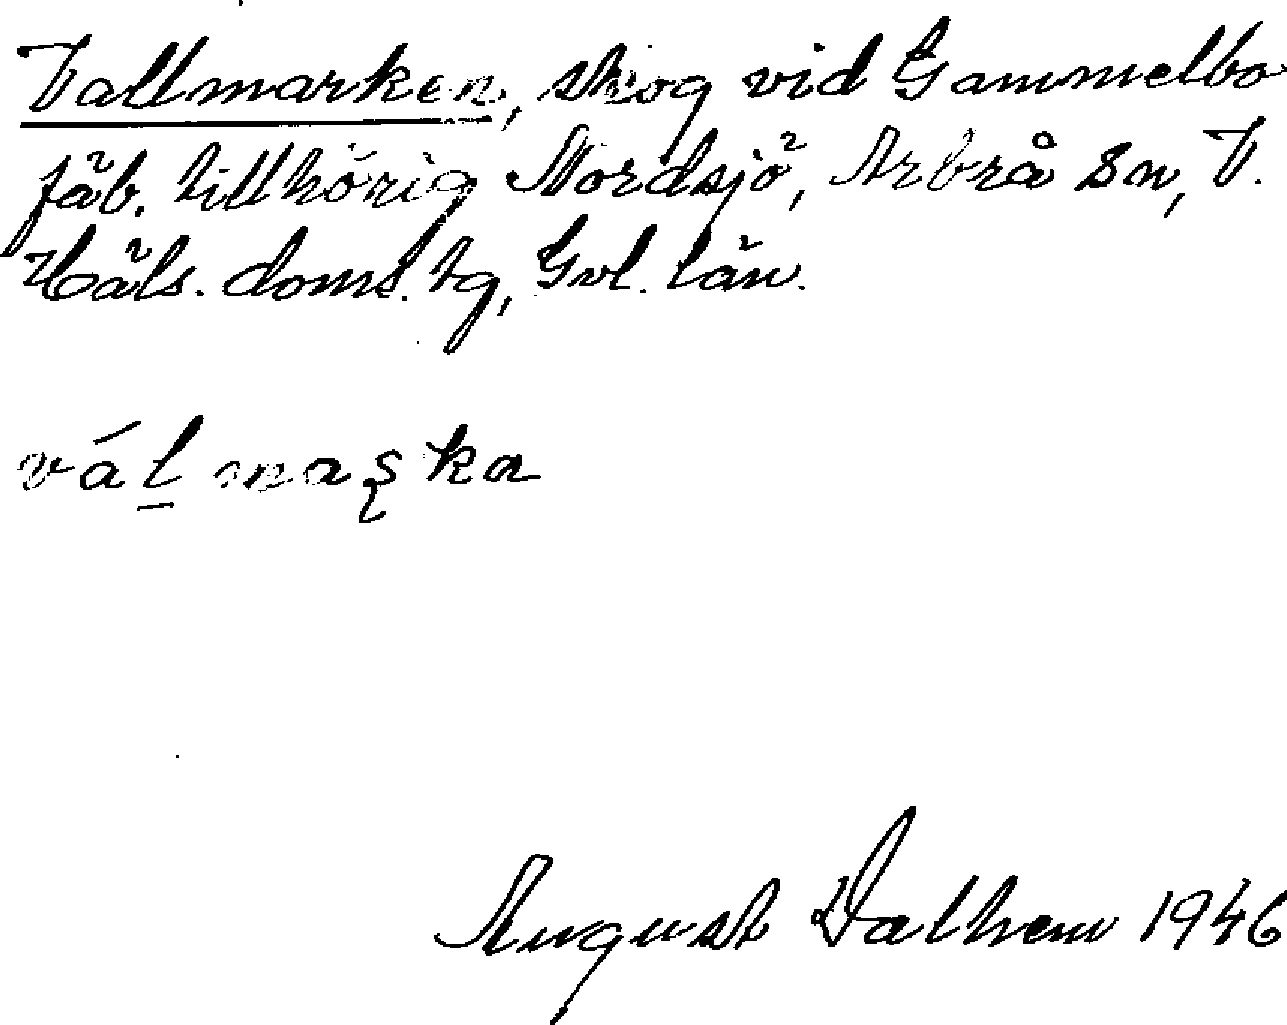 Vallmarken, skog vid Gammelbo
fäb. tillhörig Nordsjö, Arbrå sn, V.
Häls. doms. tg, Gvl. län.
vál̠maʂka
August Dalhem 1946